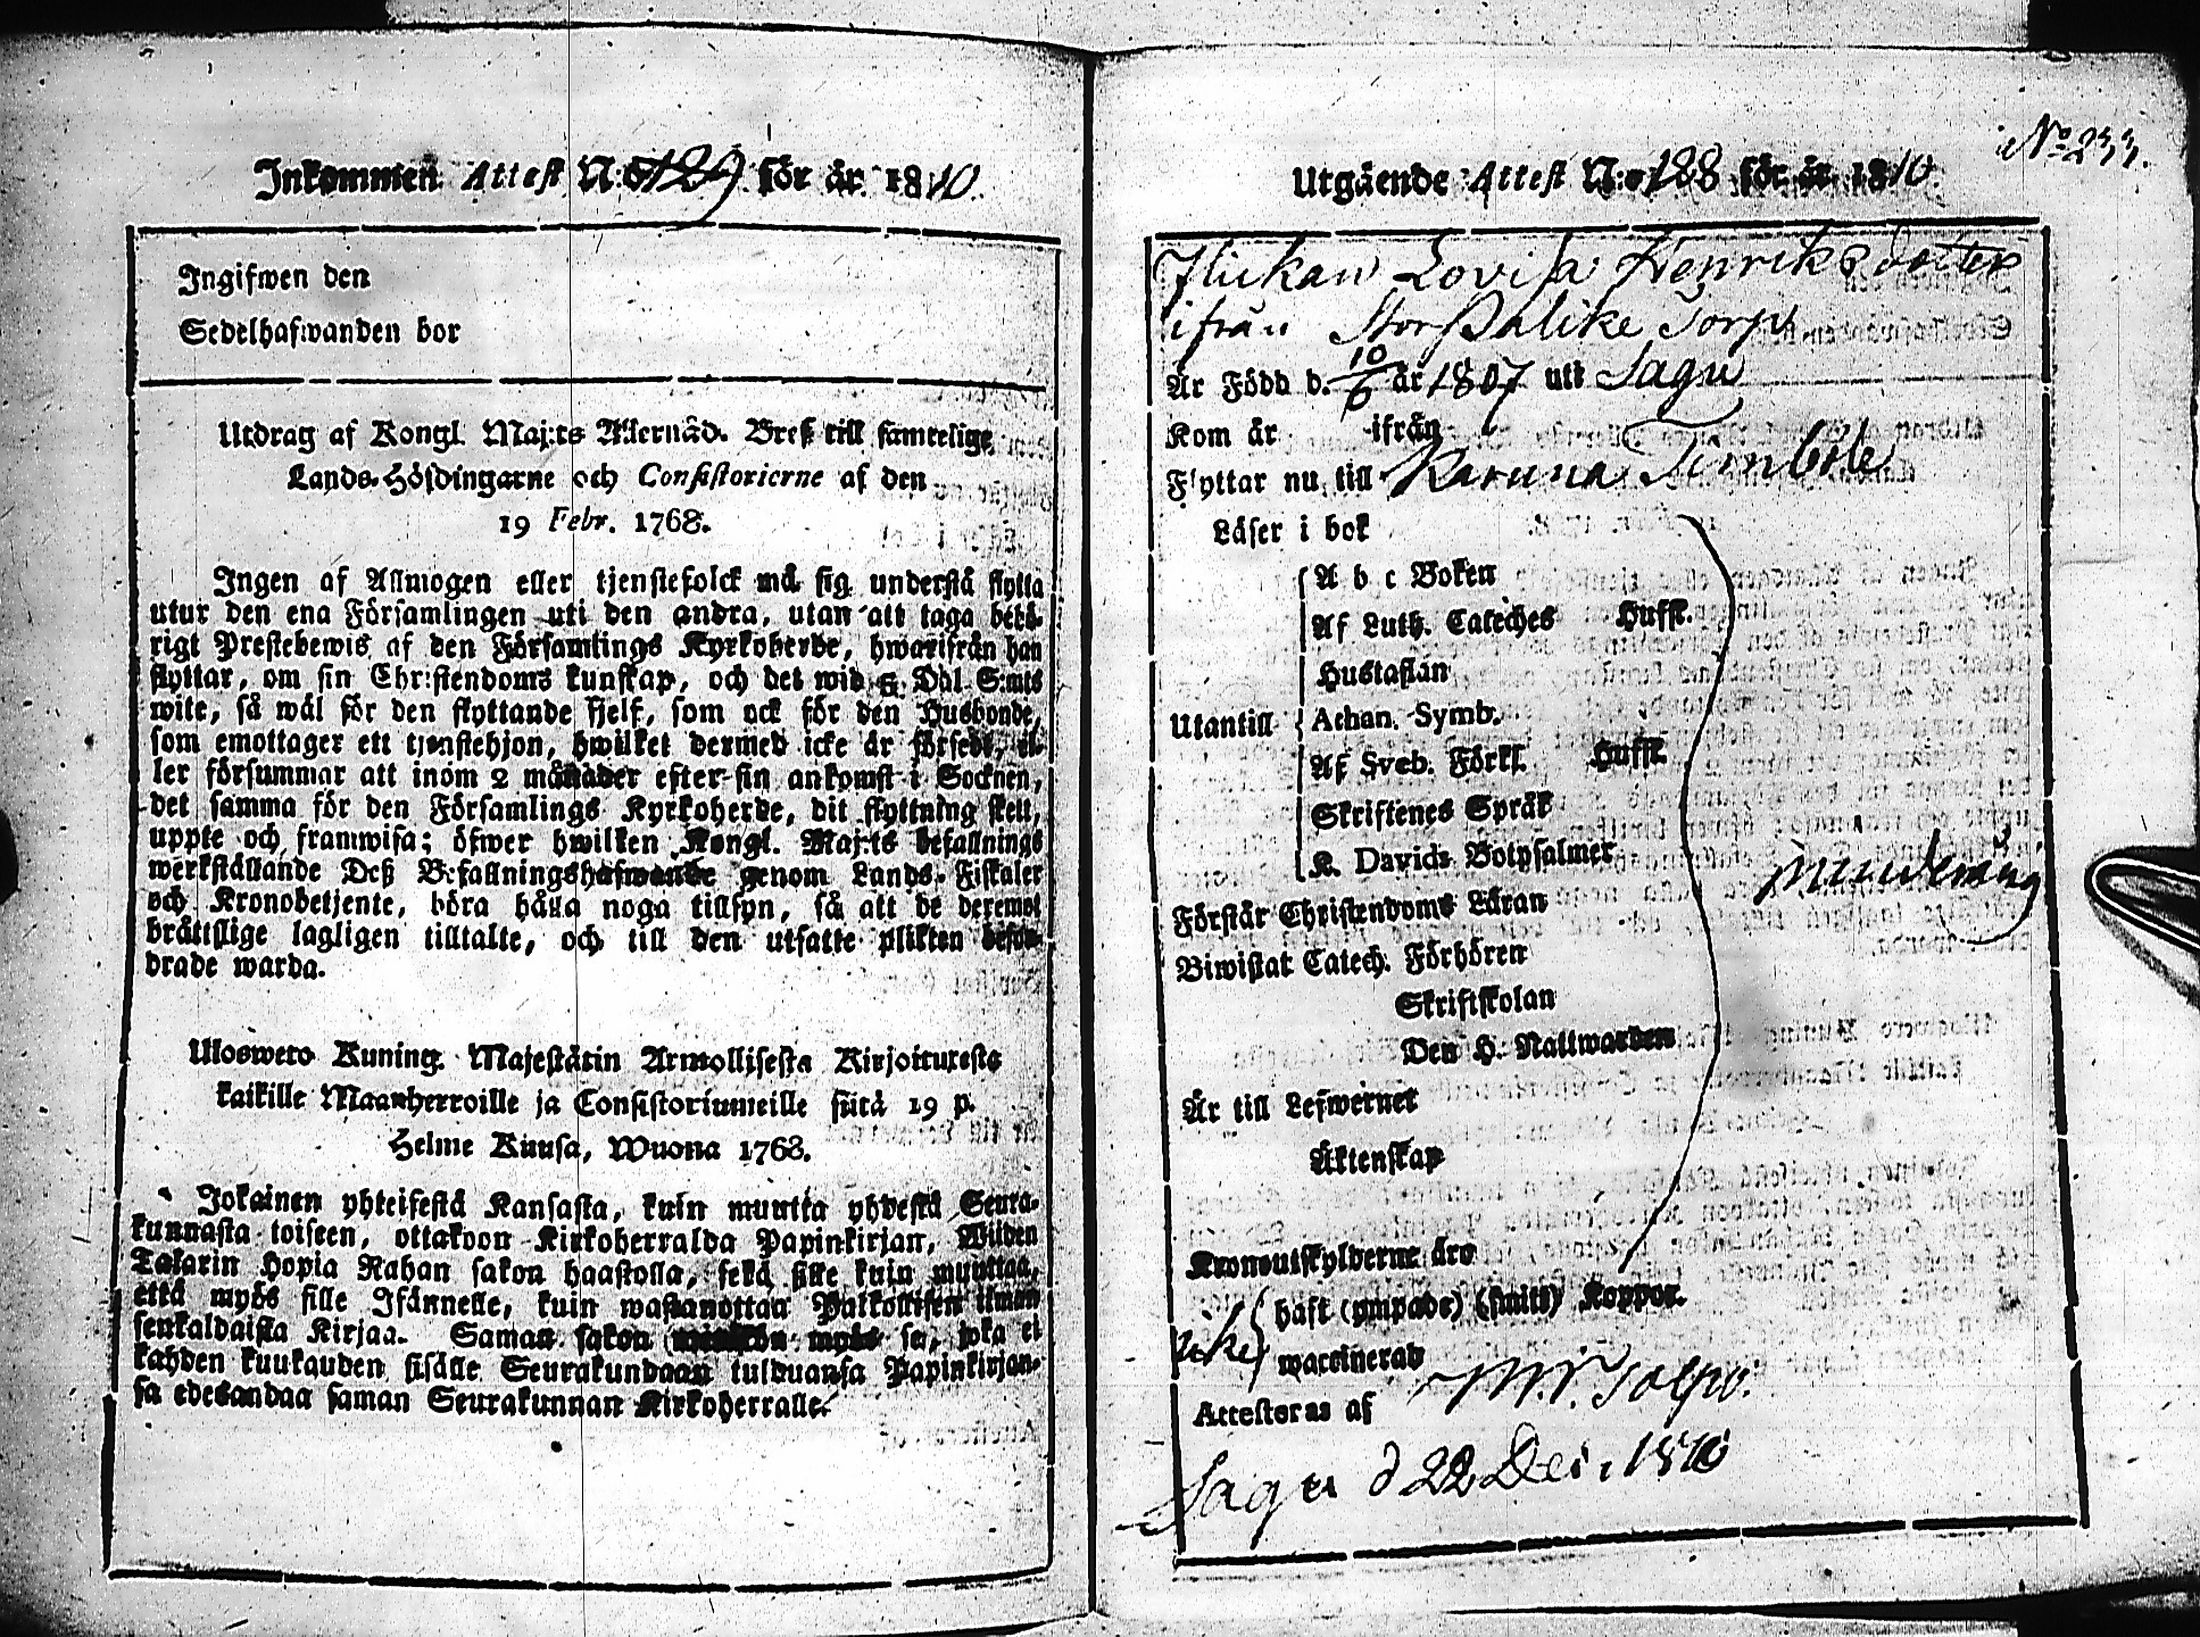 Inkommen Attest N:o 129 för år 1810.
Ingifwen den
Sedelhafwanden bor
Utdrag af Kongl. Maj:ts Allernåd. Bref till samtelige
Lands-Höfdingarne och Consistorierne af den
19 Febr. 1768.
Ingen af Allmogen eller tjenstefolck må sig understå flytta
utur den ena Församlingen uti den andra, utan att taga behö-
rigt Prestebewis af den Församlings Kyrkoherde, hwarifrån han
flyttar, om sin Christendoms kunskap, och det wid 5 Dal. S:mts
wite, så wäl för den flyttande sjelf, som ock för den Husbonde,
som emottager ett tjenstehjon, hwilket dermed icke är försedt, el-
ler försummar att inom 2 månader efter sin ankomst i Socknen,
det samma för den Församlings Kyrkoherde, dit flyttning skett,
uppte och framwisa; öfwer hwilken Kongl. Maj:ts befallnings
werkställande Deß Befallningshafwande genom Lands-Fiskaler
och Kronobetjente, böra hålla noga tillsyn, så att de deremot
bråttslige lagligen tilltalte, och till den utsatte plikten befor-
drade warda.
Ulosweto Kuning. Majestätin Armollisesta Kirjoituxesta
kaikille Maanherroille ja Consistoriumeille siitä 19 p.
Helme Kuusa, Wuona 1768.
Jokainen yhteisestä Kansasta, kuin muutta yhdestä Seura-
kunnasta toiseen, ottakoon Kirkoherralda Papinkirjan, Wiiden
Talarin Hopia Rahan sakon haastolla, sekä sille kuin muuttaa,
että myös sille Isännelle, kuin wastanottaa Palkollisen ilman
senkaldaista Kirjaa. Saman sakon myös se, joka ei
kahden kuukauden sisälle Seurakundaan tulduansa Papinkirjan-
sa edesandaa saman Seurakunnan Kirkoherralle.
No 233.
Utgående Attest N:o 128 för år 1810
Flickan Lovisa Henriksdotter
ifrån Stor Torp
Är Född d. 10/6 år 1807 uti Sagu
Kom år ifrån
Flyttar nu till Karuna
Läser i bok
A b c Boken
Af Luth. Catéches Hufst.
Hustaflan
Utantill Athan. Symb.
Af Sveb. Förkl. Hufst.
Skriftenes Språk
K. Davids Botpsalmer
minderårig
Förstår Christendoms Läran
Biwistat Catech. Förhören
Skriftskolan
Den H. Nattwarden
Är till Lefwernet
Äktenskap
Kronoutskylderne äro
haft (ympade) (smitt) Koppor.
icke waccinerad
Attesteras af
Sagu d 22 Dec. 1810